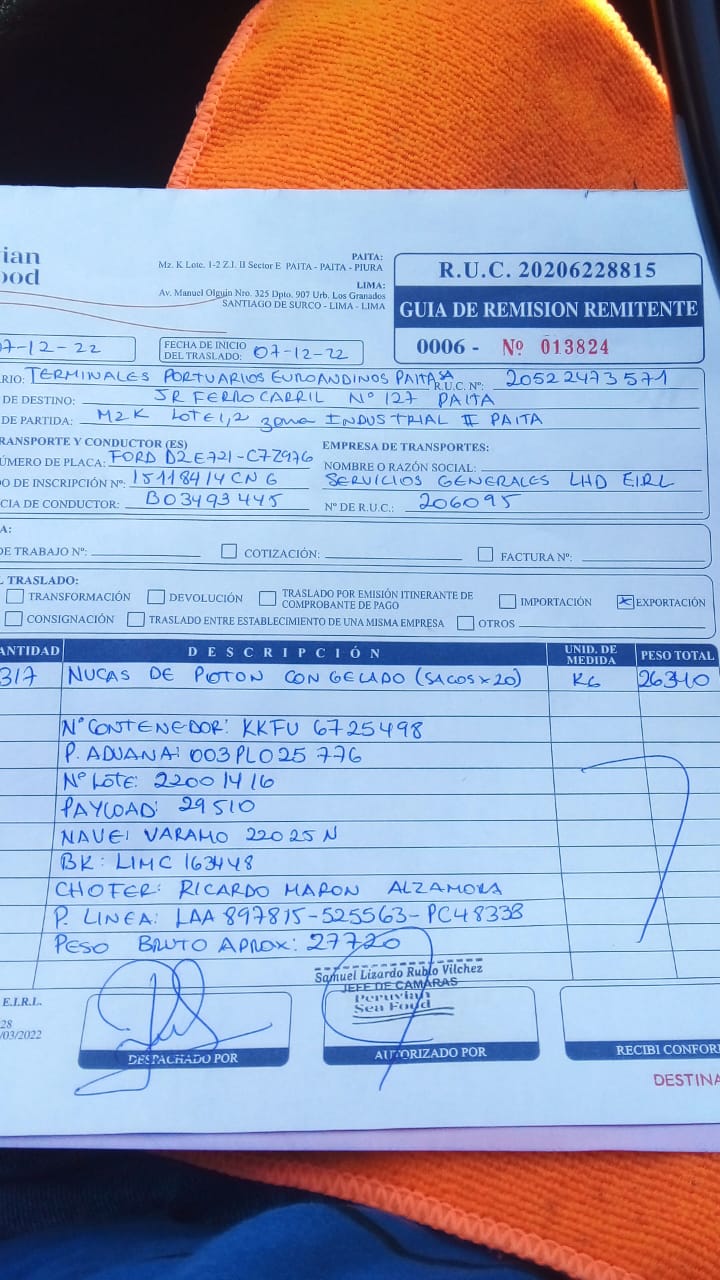 ian
ood
PAITA:
Mz. K Lote. 1-2 Z.I. II Sector E PAITA - PAITA - PIURA
LIMA:
Av. Manuel Olguin Nro. 325 Dpto. 907 Urb. Los Granados
SANTIAGO DE SURCO - LIMA - LIMA
R.U.C. 20206228815
GUIA DE REMISION REMITENTE
0006 - Nº 013824
7-12-22
FECHA DE INICIO DEL TRASLADO: 07-12-22
RIO: TERMINALES PORTUARIOS EUROANDINOS PAITA SA R.U.C. Nº: 20522473571
DE DESTINO: JR FERROCARRIL Nº 127 PAITA
DE PARTIDA: MZ K LOTE 1,2 zona INDUSTRIAL II PAITA
RANSPORTE Y CONDUCTOR (ES)
ÚMERO DE PLACA: FORD D2E721-C7Z976
O DE INSCRIPCIÓN Nº: 15118414 CNG
CIA DE CONDUCTOR: B03493445
EMPRESA DE TRANSPORTES:
NOMBRE O RAZÓN SOCIAL:
SERVICIOS GENERALES LHD EIRL
Nº DE R.U.C.: 206095
A:
DE TRABAJO Nº: COTIZACIÓN: FACTURA Nº:
L TRASLADO:
TRANSFORMACIÓN DEVOLUCIÓN TRASLADO POR EMISIÓN ITINERANTE DE COMPROBANTE DE PAGO IMPORTACIÓN EXPORTACIÓN
CONSIGNACIÓN TRASLADO ENTRE ESTABLECIMIENTO DE UNA MISMA EMPRESA OTROS
ANTIDAD DESCRIPCIÓN UNID. DE MEDIDA PESO TOTAL
317 NUCAS DE POTON CONGELADO (SACOS x 20) KG 26340
Nº CONTENEDOR: KKFU 6725498
P. ADUANA: 003PLO25 776
Nº LOTE: 22001416
PAYLOAD: 29510
NAVE: VARAMO 22025 N
BK: LIMC 163448
CHOFER: RICARDO MARON ALZAMORA
P. LINEA: LAA 897815-525563-PC48333
PESO BRUTO APROX: 27720
E.I.R.L.
28
/03/2022
Samuel Lizardo Rubio Vilchez
JEFE DE CAMARAS
Peruvian
Sea Food
DESPACHADO POR
AUTORIZADO POR
RECIBI CONFOR
DESTINA